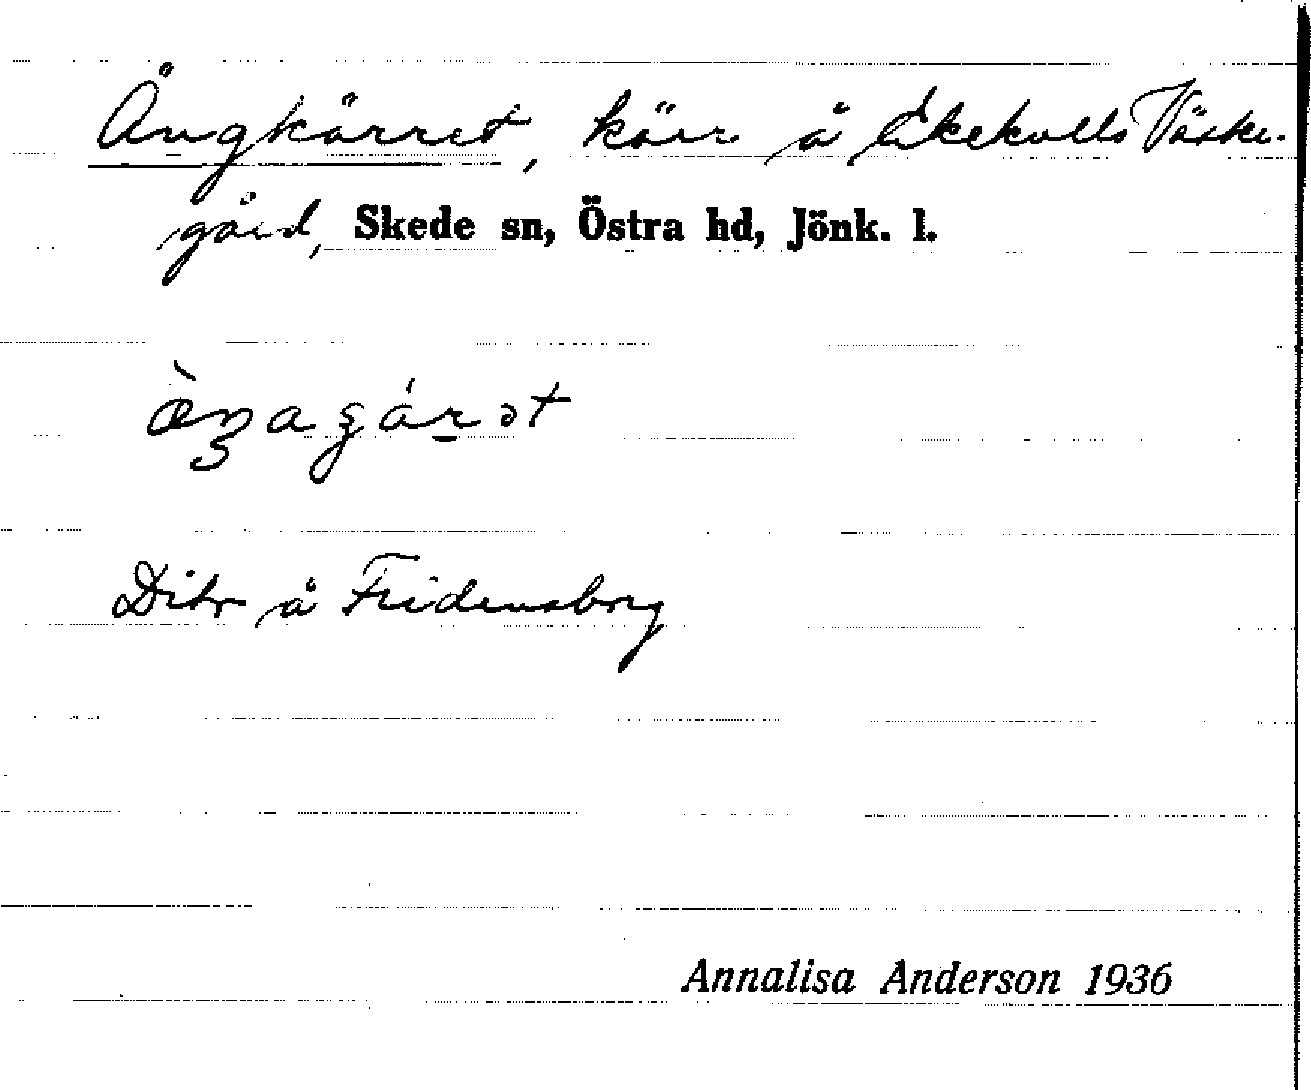 Ängkärret, kärr å Ekekulls Väster-
gård, Skede sn, Östra hd, Jönk. l.
Dito å Fridensborg
Annalisa Anderson 1936